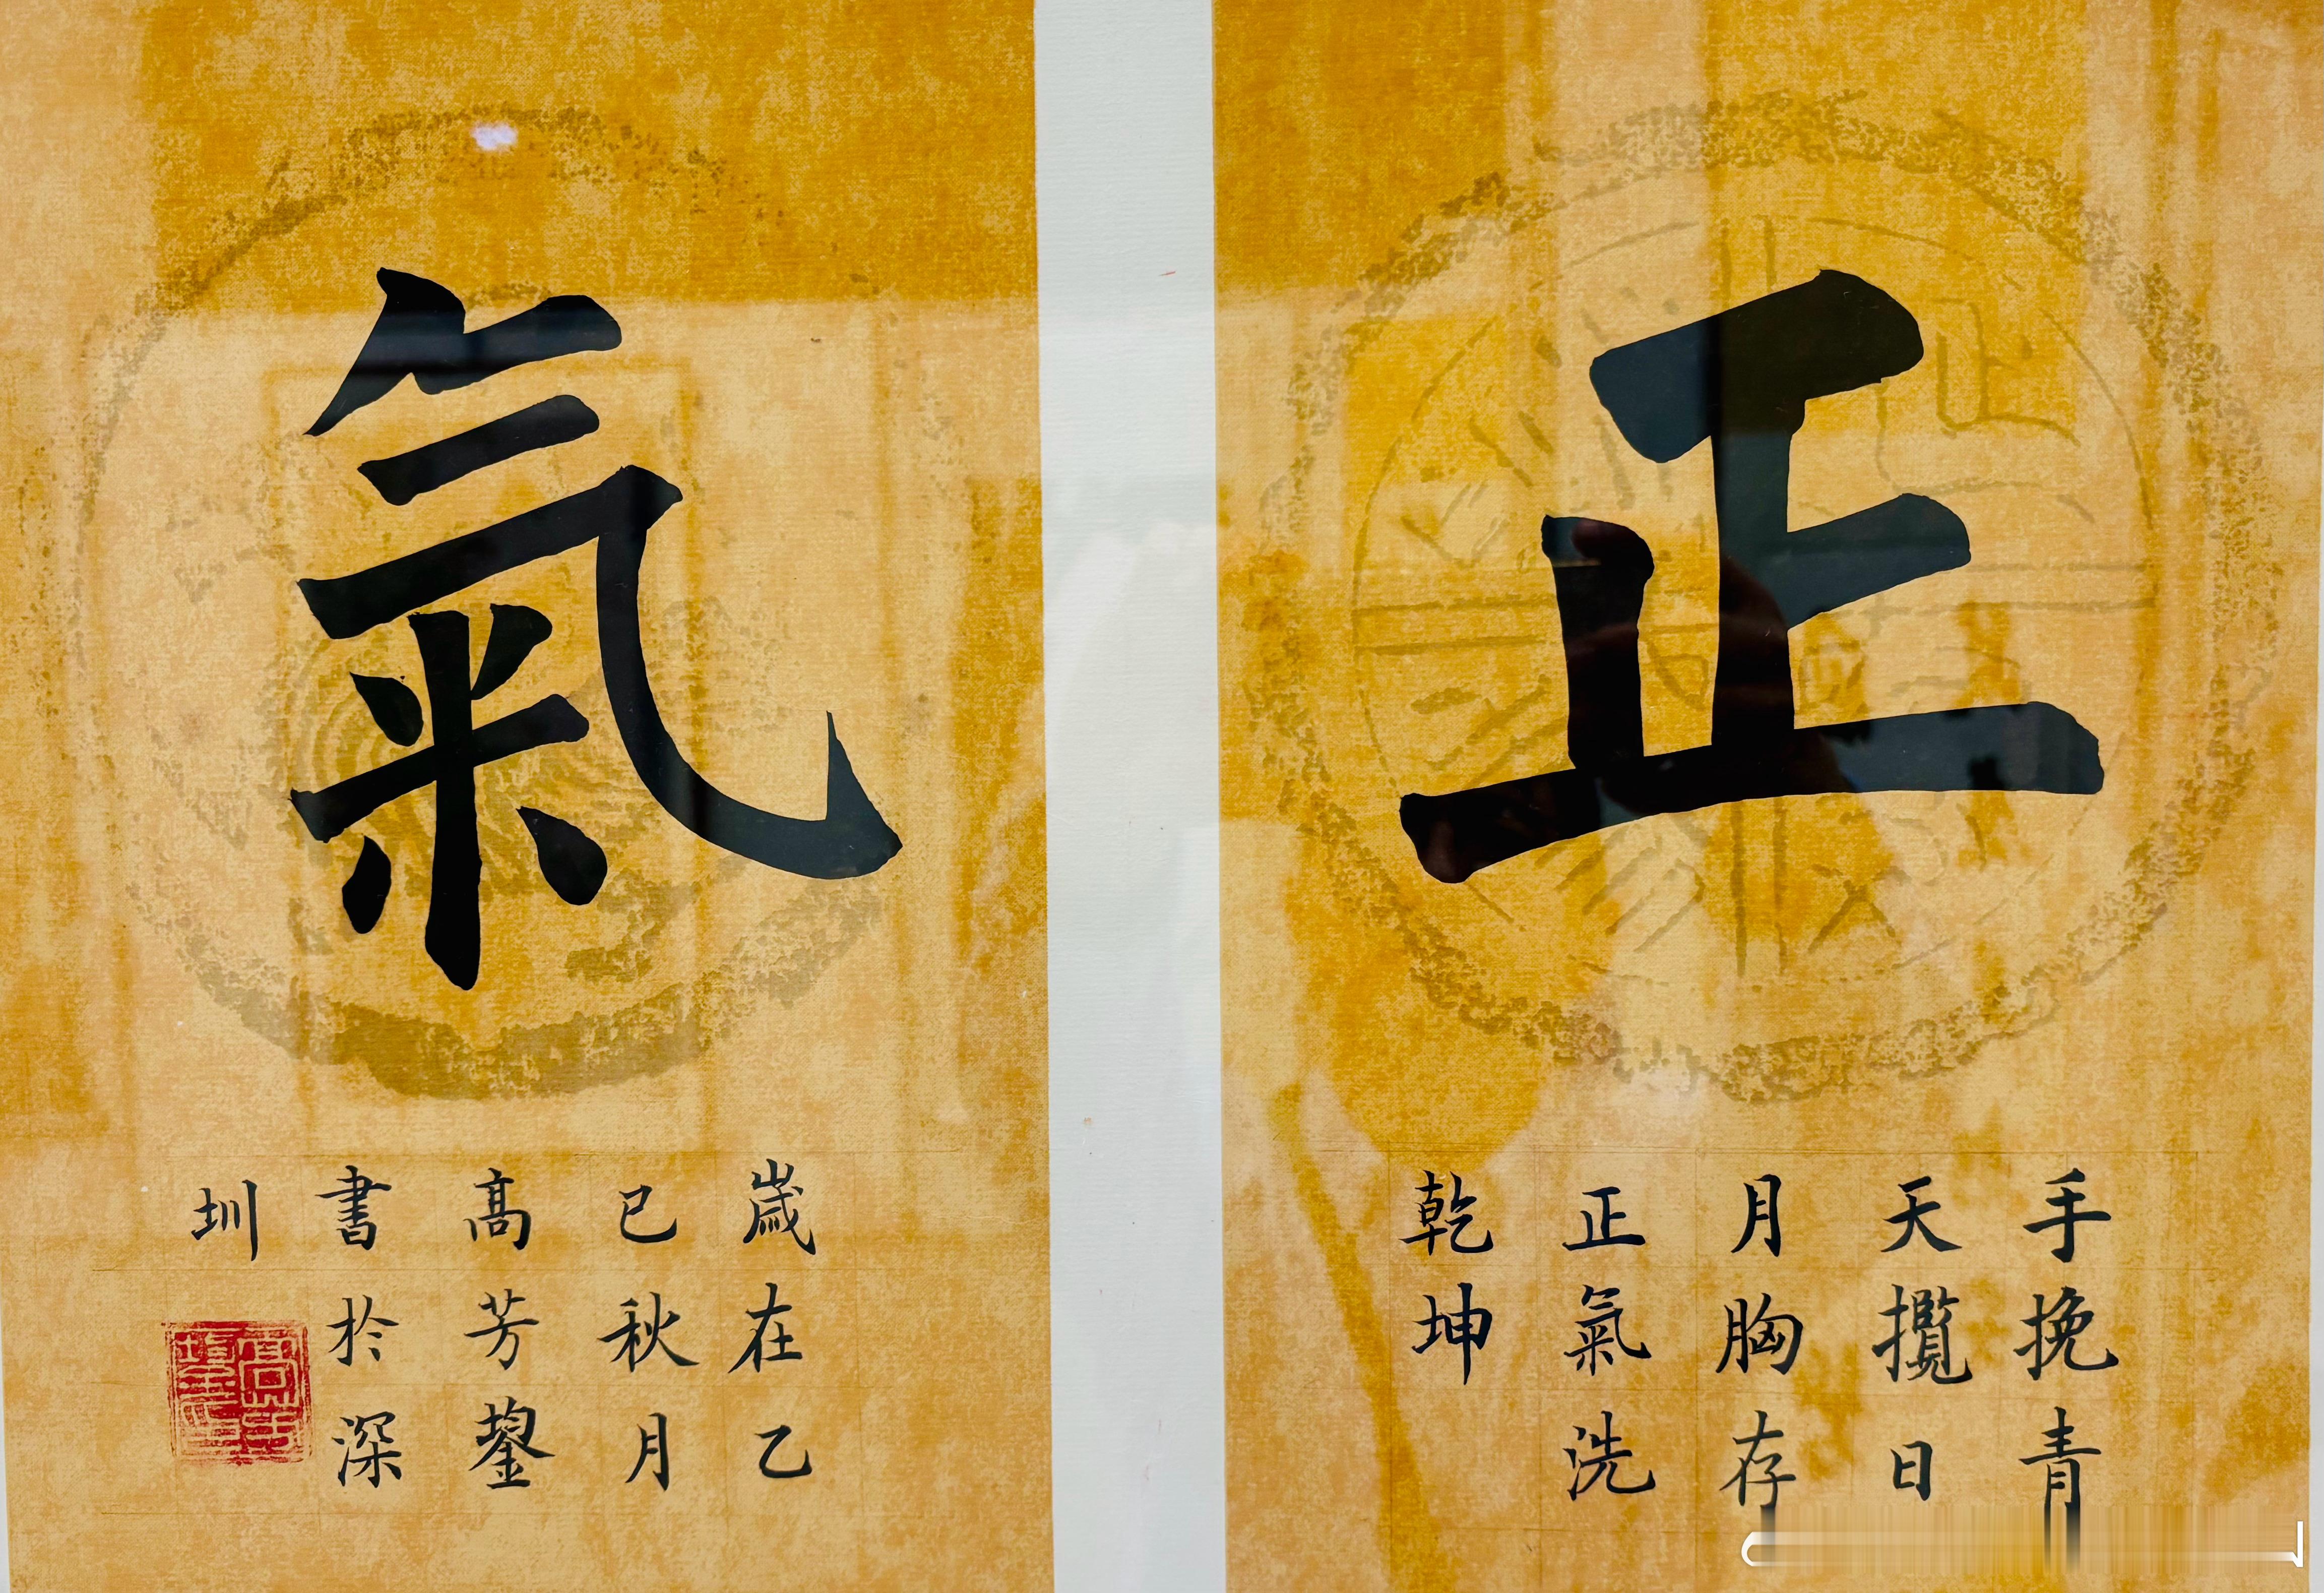 正
手挽青
天攬日
月胸存
正氣洗
乾坤
氣
歲在乙
巳秋月
髙芳鋆
書於深
圳